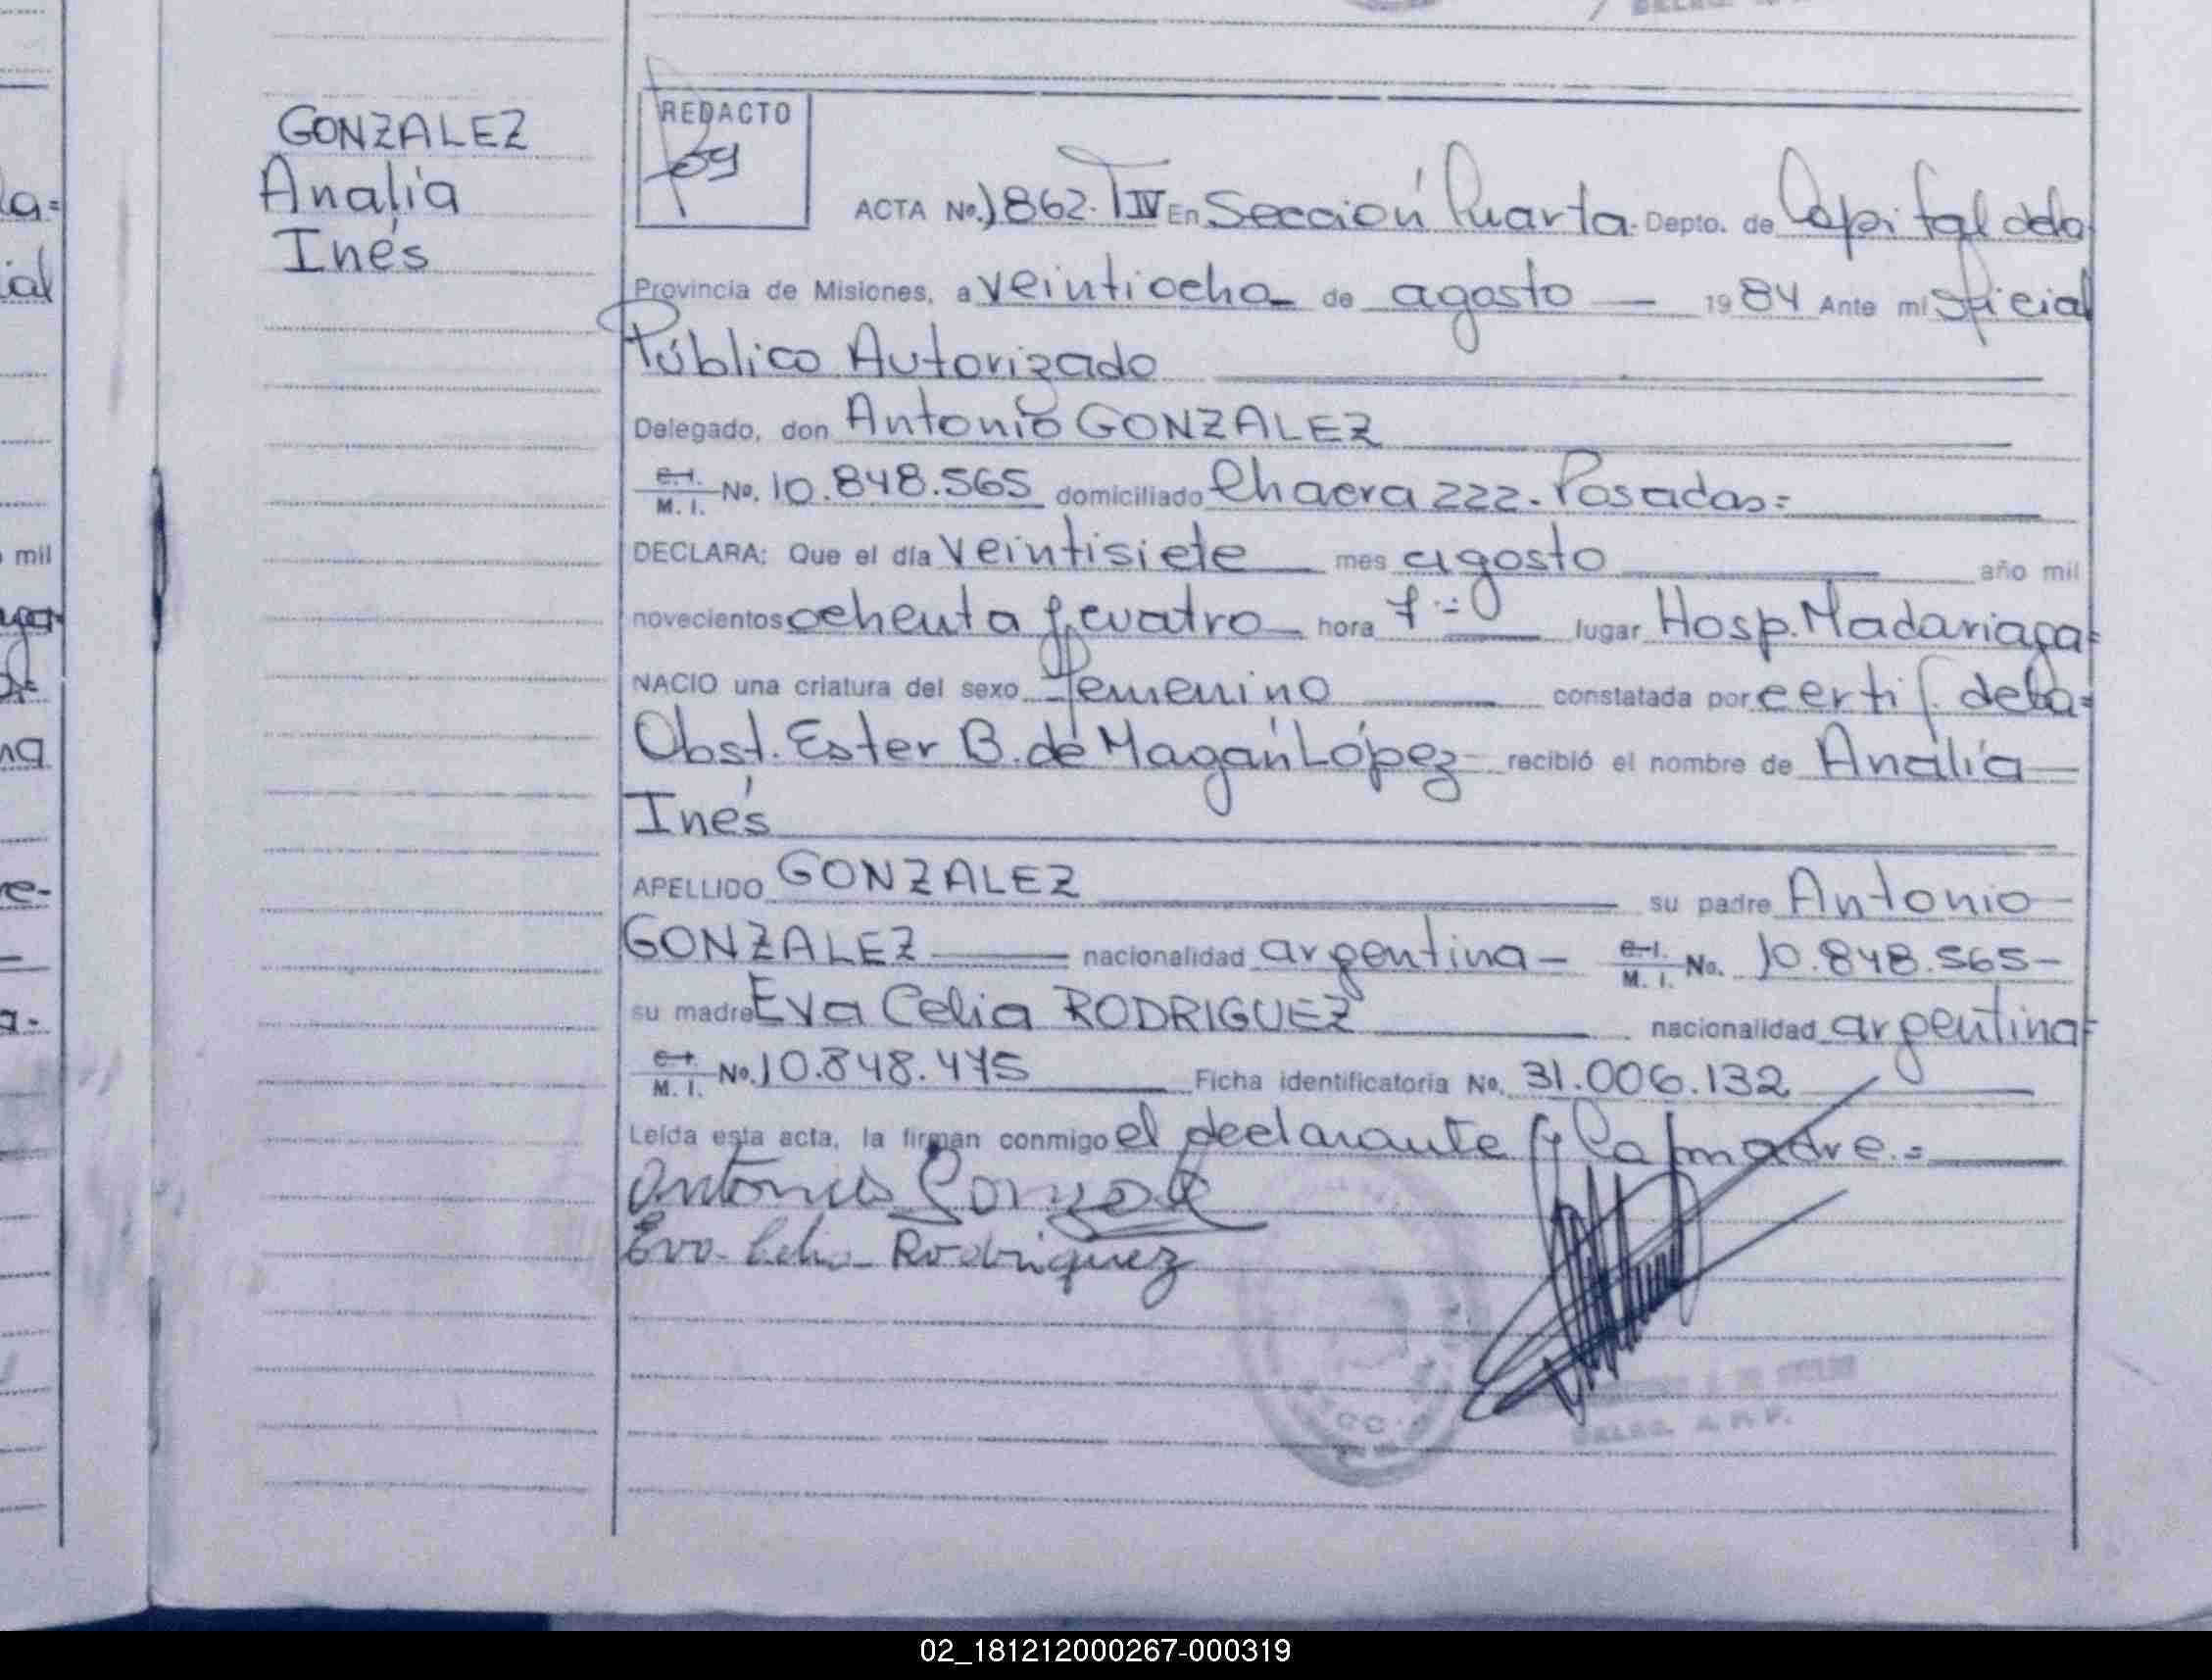 GONZALEZ
Analía
Inés
REDACTO
09
ACTA No. 1862. TIV En Sección Cuarta. Depto. de Capital dela
Provincia de Misiones, a veintiocho de agosto — 1984 Ante mi Oficial
Público Autorizado
Delegado, don Antonio GONZALEZ
C.I. M. I. No. 10.848.565 domiciliado Chacra 222. Posadas=
DECLARA: Que el día veintisiete mes agosto año mil
novecientos ochenta y cuatro hora lugar Hosp. Madariaga=
NACIO una criatura del sexo femenino constatada por certif. dela=
Obst. Ester B. de Magán López recibió el nombre de Analía
Inés
APELLIDO GONZALEZ su padre Antonio
GONZALEZ nacionalidad argentina — C.I. M. I. No. 10.848.565-
su madre Eva Celia RODRIGUEZ nacionalidad argentina=
C.I. M. I. No. 10.848.475 Ficha identificatoria No. 31.006.132
Leída esta acta, la firman conmigo el declarante y la madre.=
Antonio Gonzalez
Eva Celia Rodriguez
DELEG. A. P. P.
la=
ial
mil
re-
a.
02_181212000267-000319